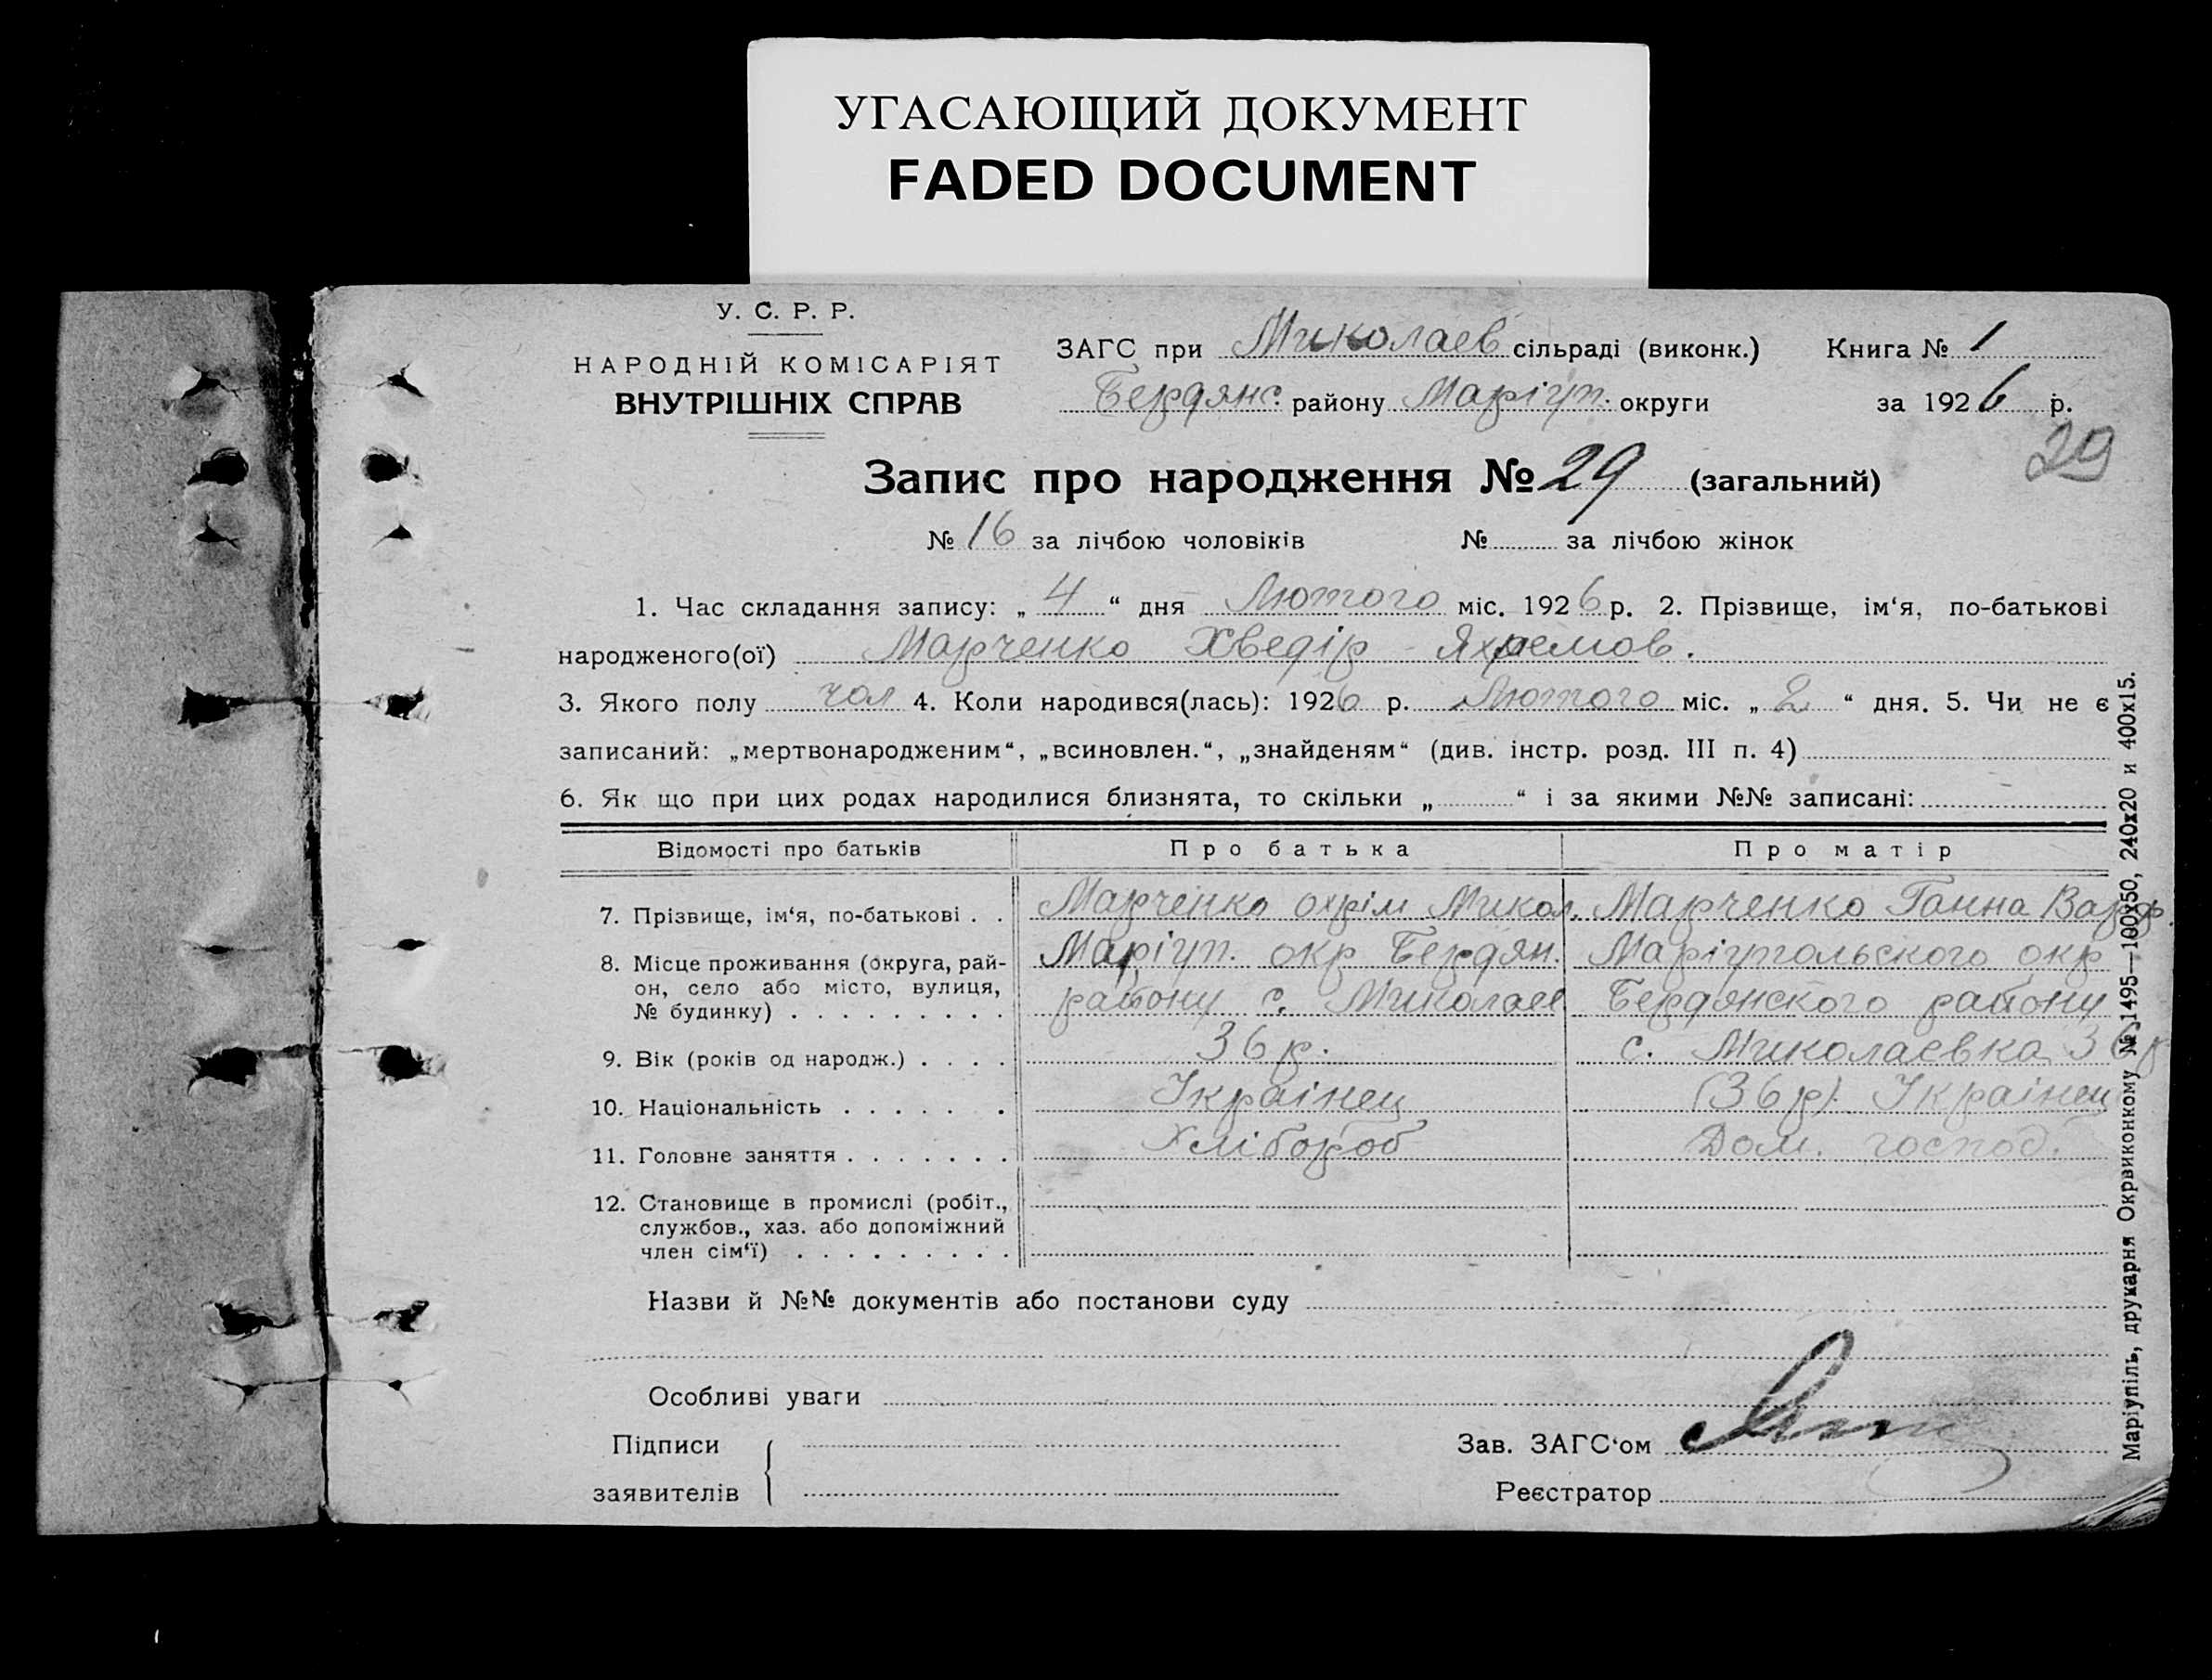 УГАСАЮЩИЙ ДОКУМЕНТ
FADED DOCUMENT
У. С. Р. Р.
НАРОДНІЙ КОМІСАРІЯТ
ВНУТРІШНІХ СПРАВ
ЗАГС при Миколаев сільраді (виконк.) Книга № 1
Бердянс. району Маріуп. округи за 1926 р.
29
Запис про народження № 29 (загальний)
№ 16 за лічбою чоловіків № за лічбою жінок
1. Час складання запису: „ 4 “ дня Лютого міс. 1926 р. 2. Прізвище, ім‘я, по-батькові
народженого(ої) Марченко Хведір Яхремов.
3. Якого полу чол 4. Коли народився(лась): 1926 р. Лютого міс. „ 2 “ дня. 5. Чи не є
записаний: „мертвонародженим“, „всиновлен.“, „знайденям“ (див. інстр. розд. III п. 4)
6. Як що при цих родах народилися близнята, то скільки „ “ і за якими №№ записані:
Відомості про батьків Про батька Про матір
7. Прізвище, ім‘я, по-батькові . . Марченко Охрім Микол. Марченко Ганна Варф.
8. Місце проживання (округа, рай- Маріуп. окр Бердян. Маріупольского окр
он, село або місто, вулиця, району с. Миколаев Бердянского району
№ будинку) . . . . . . . . .
9. Вік (років од народж.) . . . . 36 р. с. Миколаевка 36 р
10. Національність . . . . . . Украінец (36 р). Украінец
11. Головне заняття . . . . . . . Хлібороб Дом. господ.
12. Становище в промислі (робіт.,
службов., хаз. або допоміжний
член сім‘ї) . . . . . . . . .
Назви й №№ документів або постанови суду
Особливі уваги
Підписи
заявителів
Зав. ЗАГС‘ом
Реєстратор
Маріупіль, друкарня Окрвиконкому № 1495—100х50, 240х20 и 400х15.